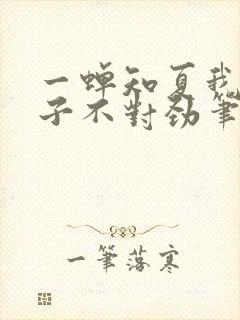 一蝉知夏我
子不對劲筆
一筆落寒